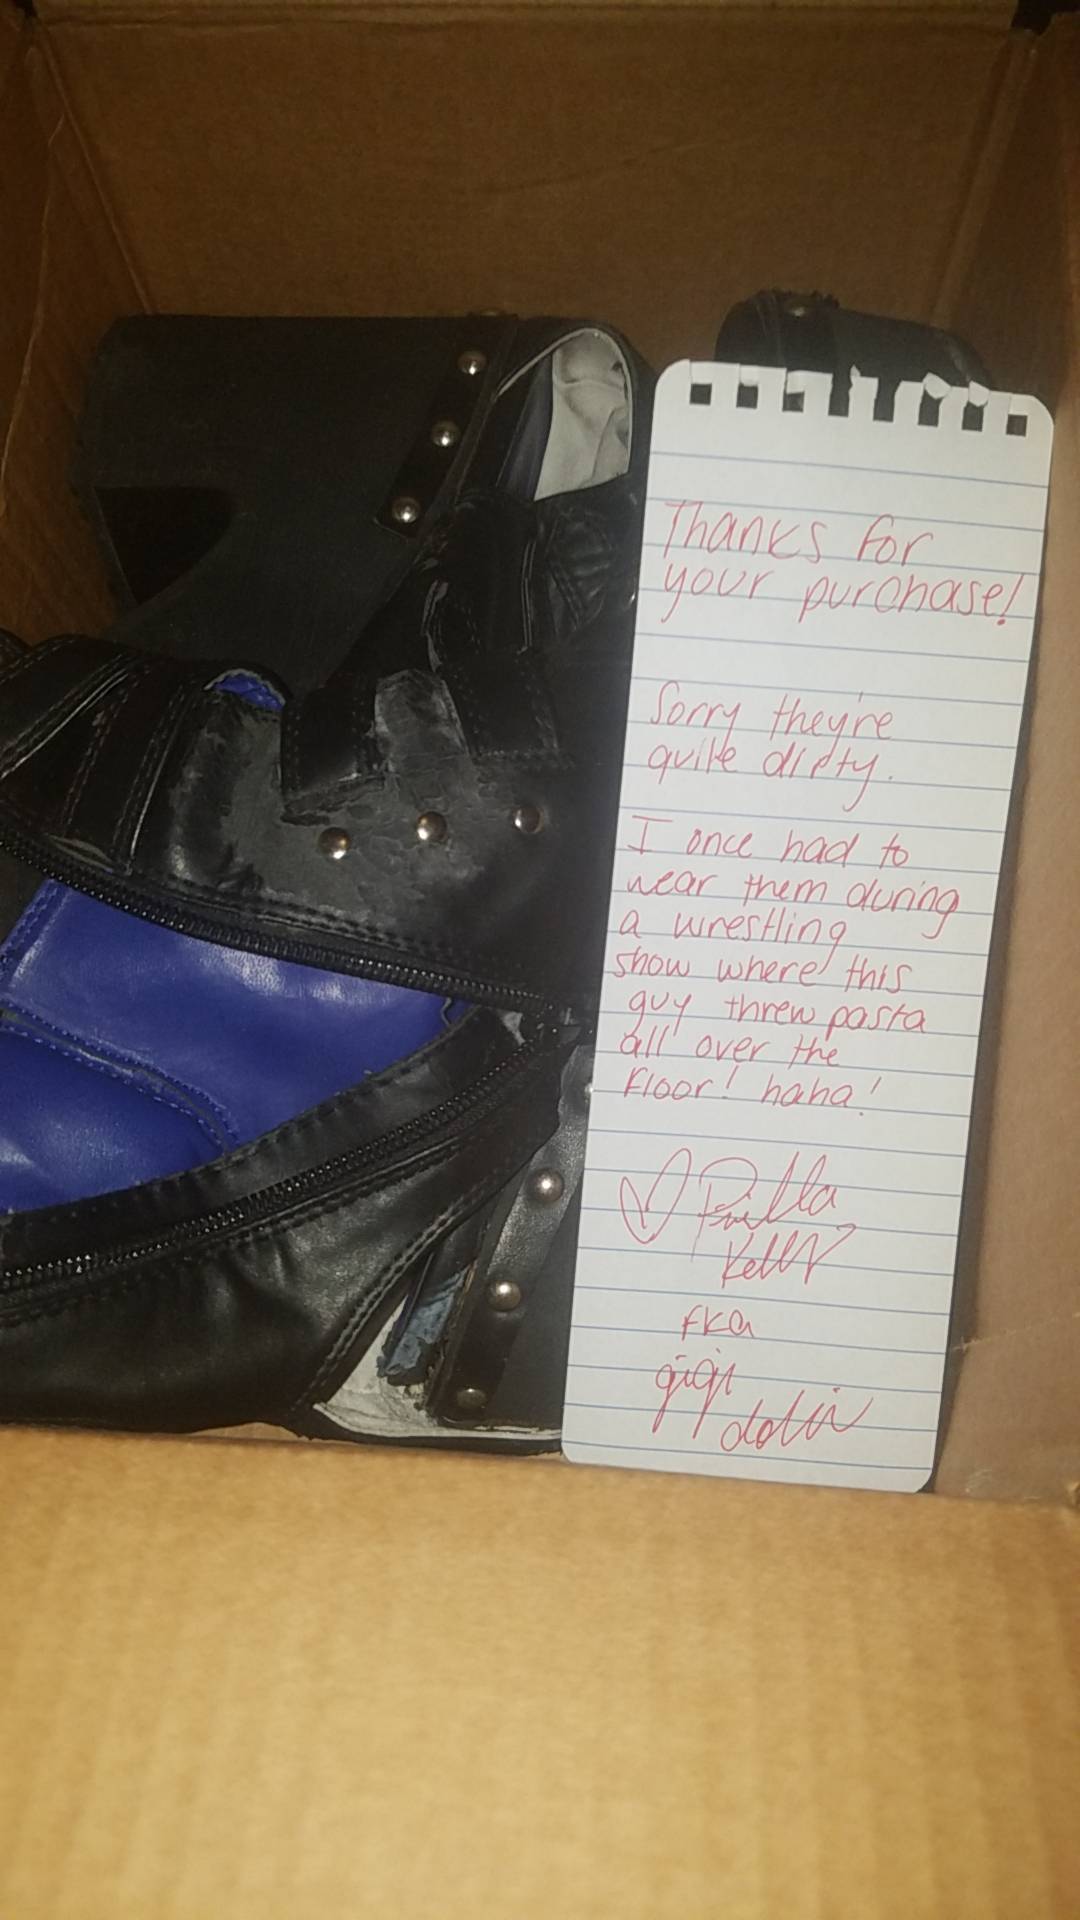 Thanks for
your purchase!
Sorry they're
quite dirty.
I once had to
wear them during
a wrestling
show where this
guy threw pasta
all over the
floor! haha!
♡ Priscilla
Kelly
fka
gigi
dolin